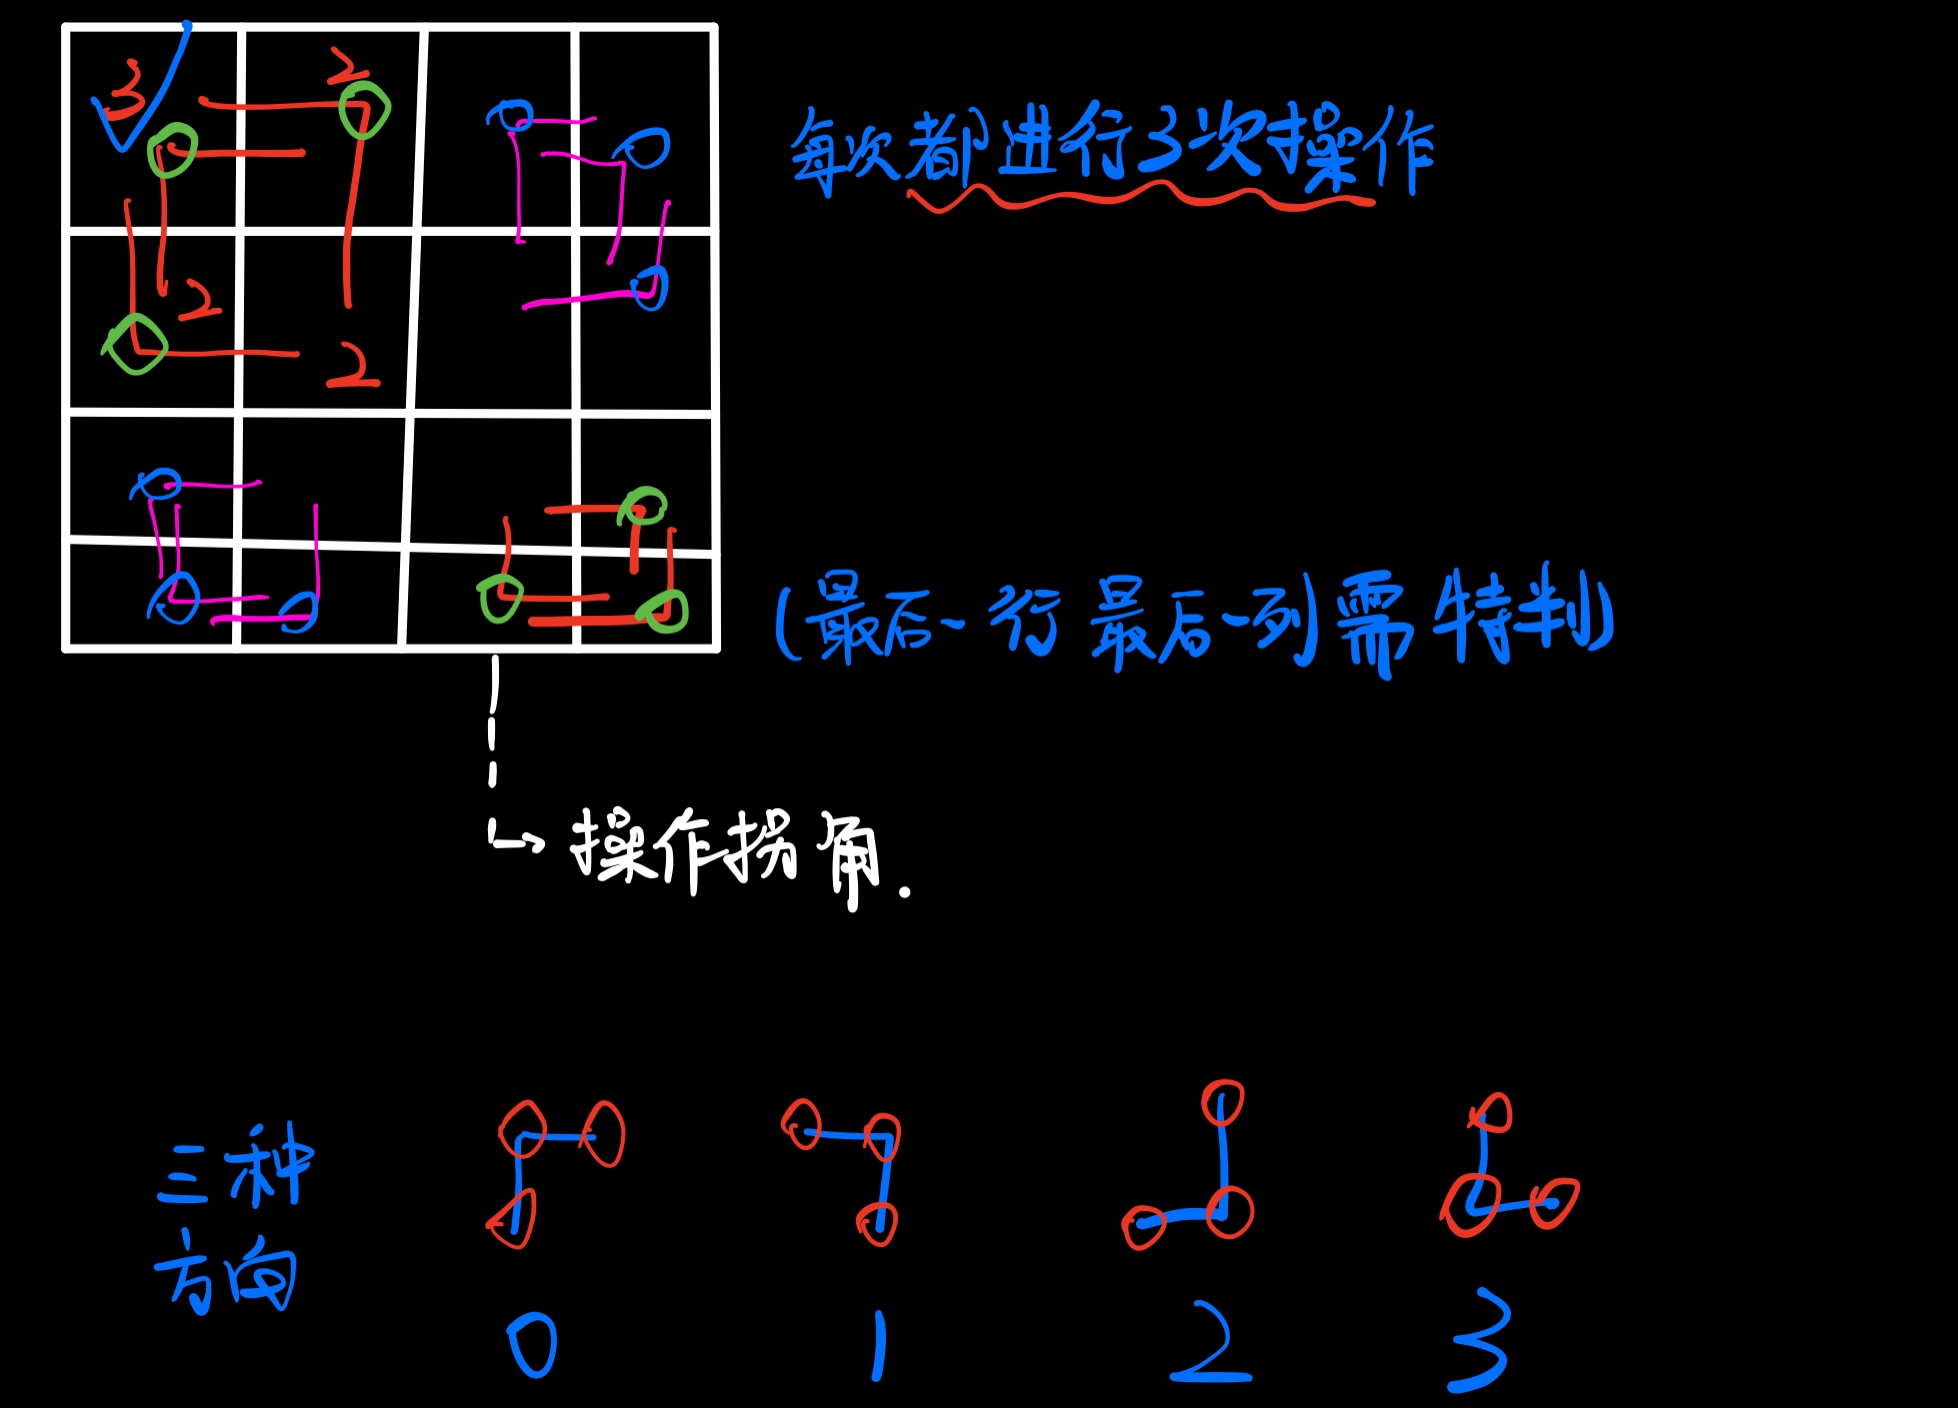 3 2
2
2
每次都进行3次操作
(最后一行最后一列)需特判)
操作拐角.
三种
方向
0 1 2 3